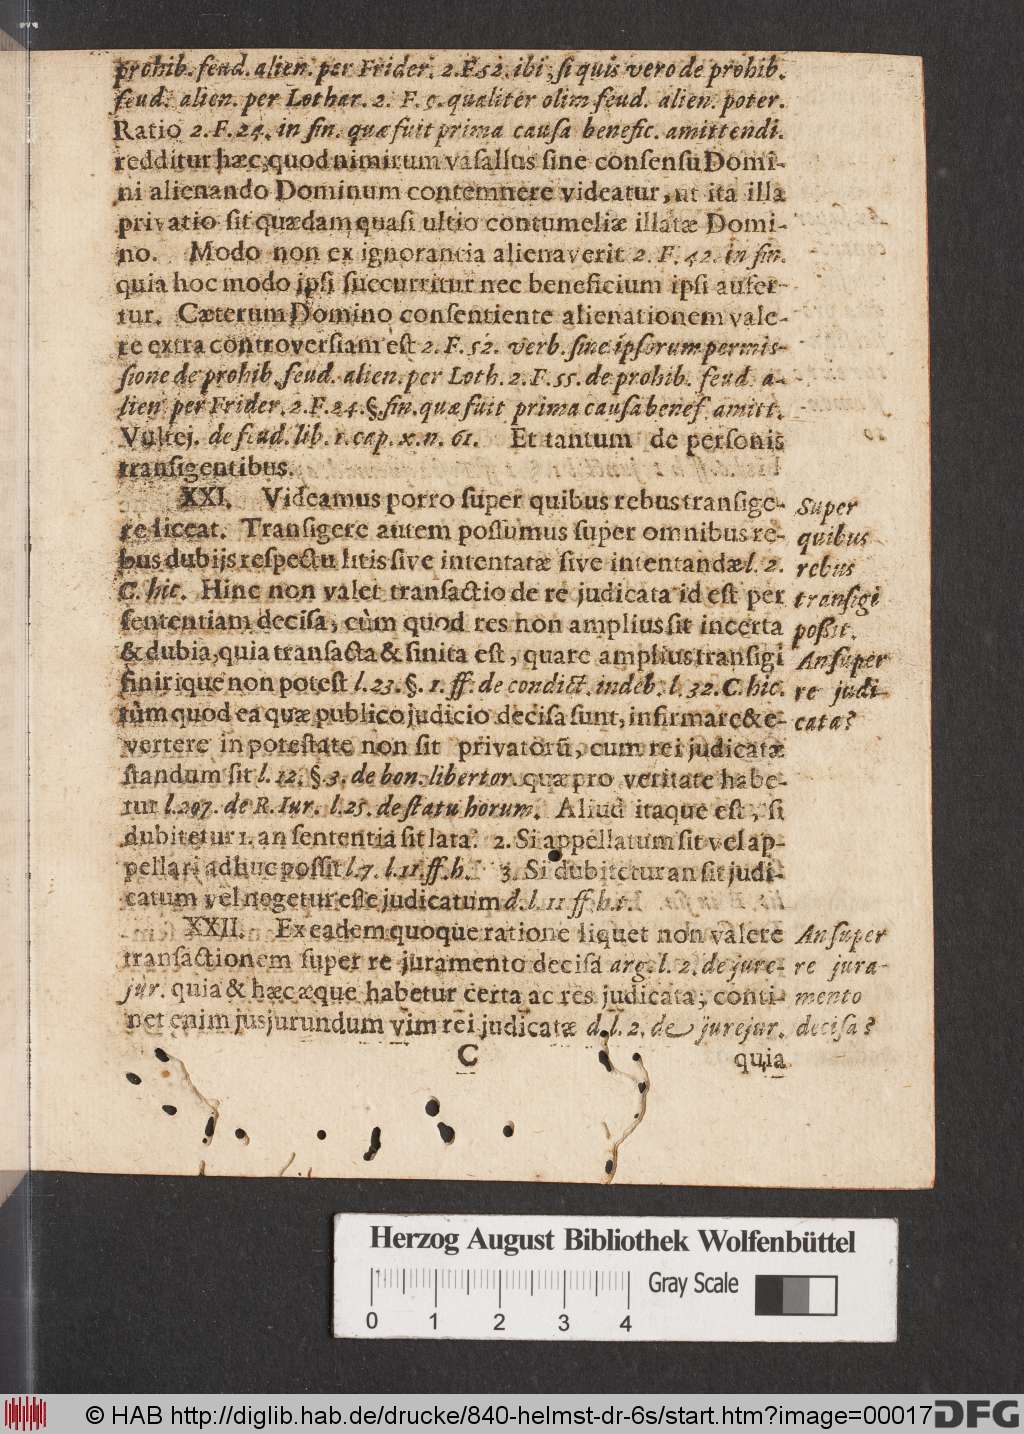 prohib. feud. alien. per Frider. 2. F. 52. ibi, ſi quis vero de prohib.
feud. alien. per Lothar. 2. F. 9. qualiter olim feud. alien. poter.
Ratio 2. F. 24. in fin. quæ fuit prima cauſa benefic. amittendi.
redditur hæc, quod nimirum vaſallus ſine conſenſu Domi-
ni alienando Dominum contemnere videatur, ut ita illa
privatio ſit quædam quaſi ultio contumeliæ illatæ Domi-
no. Modo non ex ignorantia alienaverit 2. F. 42. in fin.
quia hoc modo ipſi ſuccurritur nec beneficium ipſi aufer-
tur. Cæterum Domino conſentiente alienationem vale-
re extra controverſiam eſt 2. F. 52. verb. ſine ipſorum permiſ-
ſione de prohib. feud. alien. per Loth. 2. F. 55. de prohib. feud. a-
lien. per Frider. 2. F. 24. §. fin. quæ fuit prima cauſa benef. amitt.
Vultej. de feud. lib. 1. cap. x. n. 61. Et tantum de perſonis
transigentibus.
XXI. Videamus porro ſuper quibus rebus transige-
re liceat. Transigere autem poſſumus ſuper omnibus re-
bus dubijs reſpectu litis ſive intentatæ ſive intentandæ l. 2.
C. hic. Hinc non valet transactio de re judicata id eſt per
ſententiam deciſa, cùm quod res non amplius ſit incerta
& dubia, quia transacta & finita eſt, quare amplius transigi
finirique non poteſt l. 23. §. 1. ff. de condict. indeb. l. 32. C. hic.
tùm quod ea quæ publico judicio deciſa ſunt, infirmare & e-
vertere in poteſtate non ſit privatorũ, cum rei judicatæ
ſtandum ſit l. 12. § 3. de bon. libertor. quæ pro veritate habe-
tur l. 207. de R. Iur. l. 25. de ſtatu horum. Aliud itaque eſt, ſi
dubitetur 1. an ſententia ſit lata. 2. Si appellatum ſit vel ap-
pellari adhuc poſſit l. 7. l. 11. ff. h. 3. Si dubitetur an ſit judi-
catum vel negetur eſſe judicatum d. l. 11 ff. h. t.
XXII. Ex eadem quoque ratione liquet non valere
transactionem ſuper re juramento deciſa arg. l. 2. de jure-
jur. quia & hæc æque habetur certa ac res judicata, conti-
net enim jusjurundum vim rei judicatæ d. l. 2. de jurejur.
C quia
Super
quibus
rebus
transigi
poſſit.
An ſuper
re judi-
cata?
An ſuper
re jura-
mento
deciſa?
Herzog August Bibliothek Wolfenbüttel
Gray Scale
0 1 2 3 4
© HAB http://diglib.hab.de/drucke/840-helmst-dr-6s/start.htm?image=00017
DFG